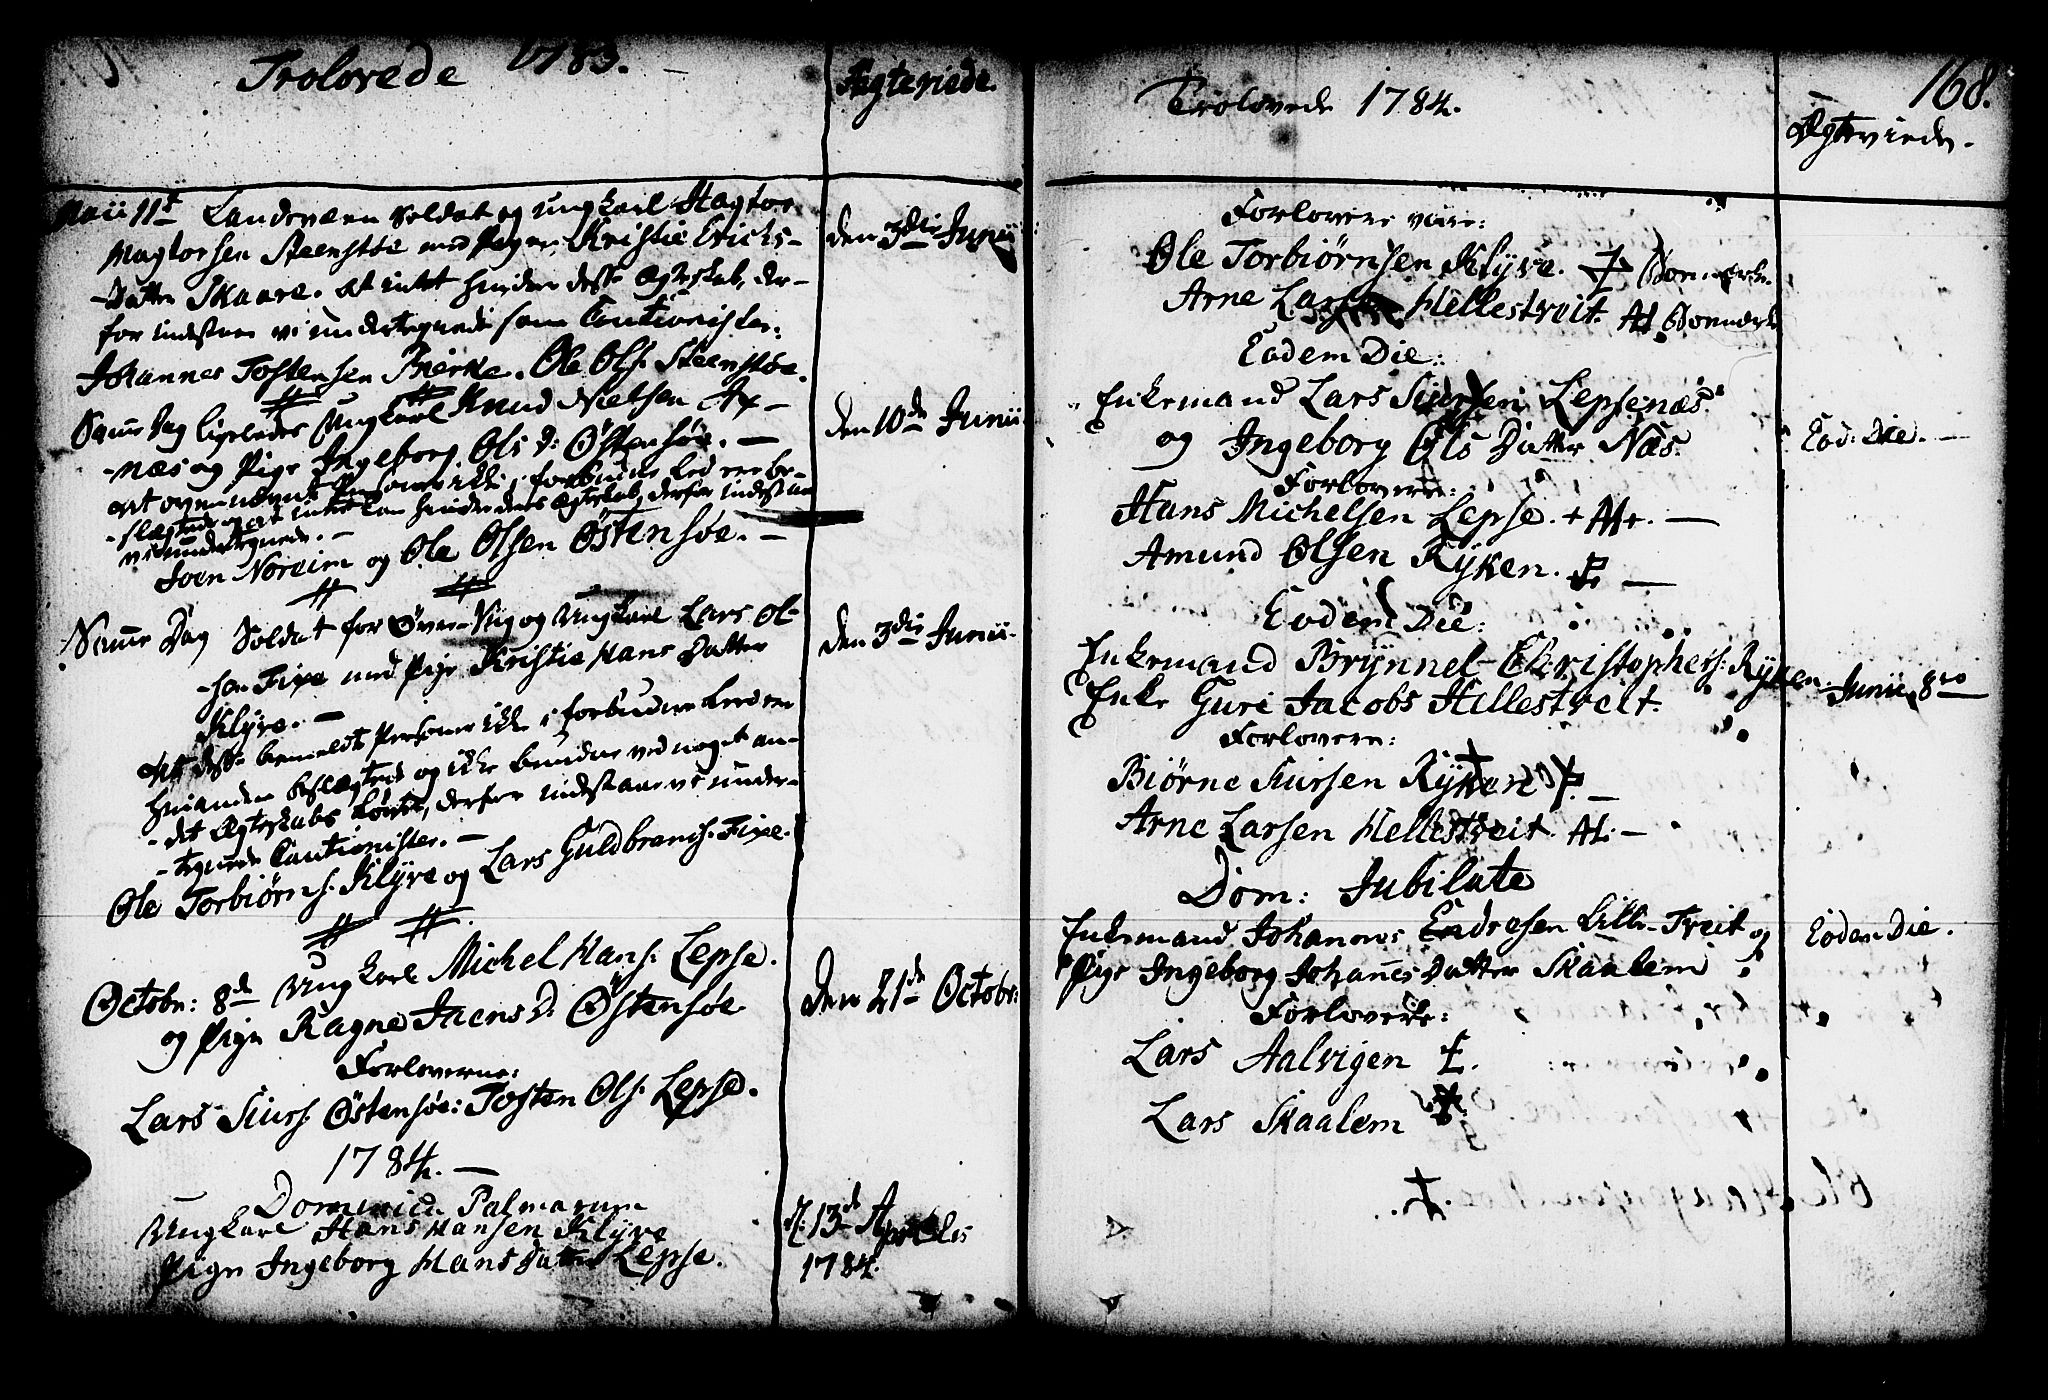 Trolovede 1783.
Ægteviede.
Maii 11t Landeværn Soldat og ungkarl Hagtor
Hagtorsen Steenstøe med Pigen Kristie Erichs-
-Datter Skaare. At intet hindrer dette Ægteskab, der-
for indestaar vi undertegnede som Cautionister.
Johannes Tostensen Bierke. Ole Ols. Steenstøe.
den 3die Junii
Samme Dag ligeledes Ungkarl Knud Nielsen Ax-
-næs og Pige Ingeborg Ols D: Østensøe. —
at ovennævnte Personer ikke i forbudne Led ere be-
-slægtede og at intet kan hindre deres Ægteskab, derfor indestaar
vi undertegnede. —
Joen Noreim og Ole Olsen Østensøe. —
den 10de Junii
Samme Dag Soldat for Øvre-Vig og Ungkarl Lars Ol-
-sen Fixe med Pige Kristie Hans Datter
Klyve. —
At disse bemeldte Personer ikke i forbudne Leed ere
hinanden beslægtede og ikke bundne ved noget an-
-det Ægteskabs Løvte, derfor indestaar vi under-
-tegnede Cautionister. —
Ole Torbiørns. Klyve og Lars Guldbrands. Fixe.
den 3die Junii.
Octobr: 8de Ungkarl Michel Hans: Lepse.
og Pige Ragne Jaens D. Østensøe
Forloverne:
Lars Siurs. Østensøe: Tosten Ols. Lepse.
den 21de Octobr:
1784. —
Dominica Palmarum
Ungkarl Hans Hansen Klyve
Pige Ingeborg Hans Datter Lepse.
d: 13de Aprilis
1784.
168.
Trolovede 1784.
Ægteviede.
Forlovere vare:
Ole Torbiørnsen Klyve. Boemerke.
Arne Larsen Hellestveit. AL Boemærke
Eodem Die:
Enkemand Lars Siursen Lepsenæs
og Ingeborg Ols Datter Næs.
Eod: Die. —
Forlovere:
Hans Michelsen Lepse. + —
Amund Olsen Ryken. —
Eodem Die:
Enkemand Brynnel Christophers: Ryken.
Enke Guri Jacobs Hellestveit.
Junii 8
Forlovere:
Biørne Siursen Ryken —
Arne Larsen Hellestveit. AL. —
Dom: Jubilate
Enkemand Johannes Endresen Lille-Tveit og
Pige Ingeborg Johannes Datter Skaalem
Eodem Die.
Forlovere:
Lars Aalvigen
Lars Skaalem